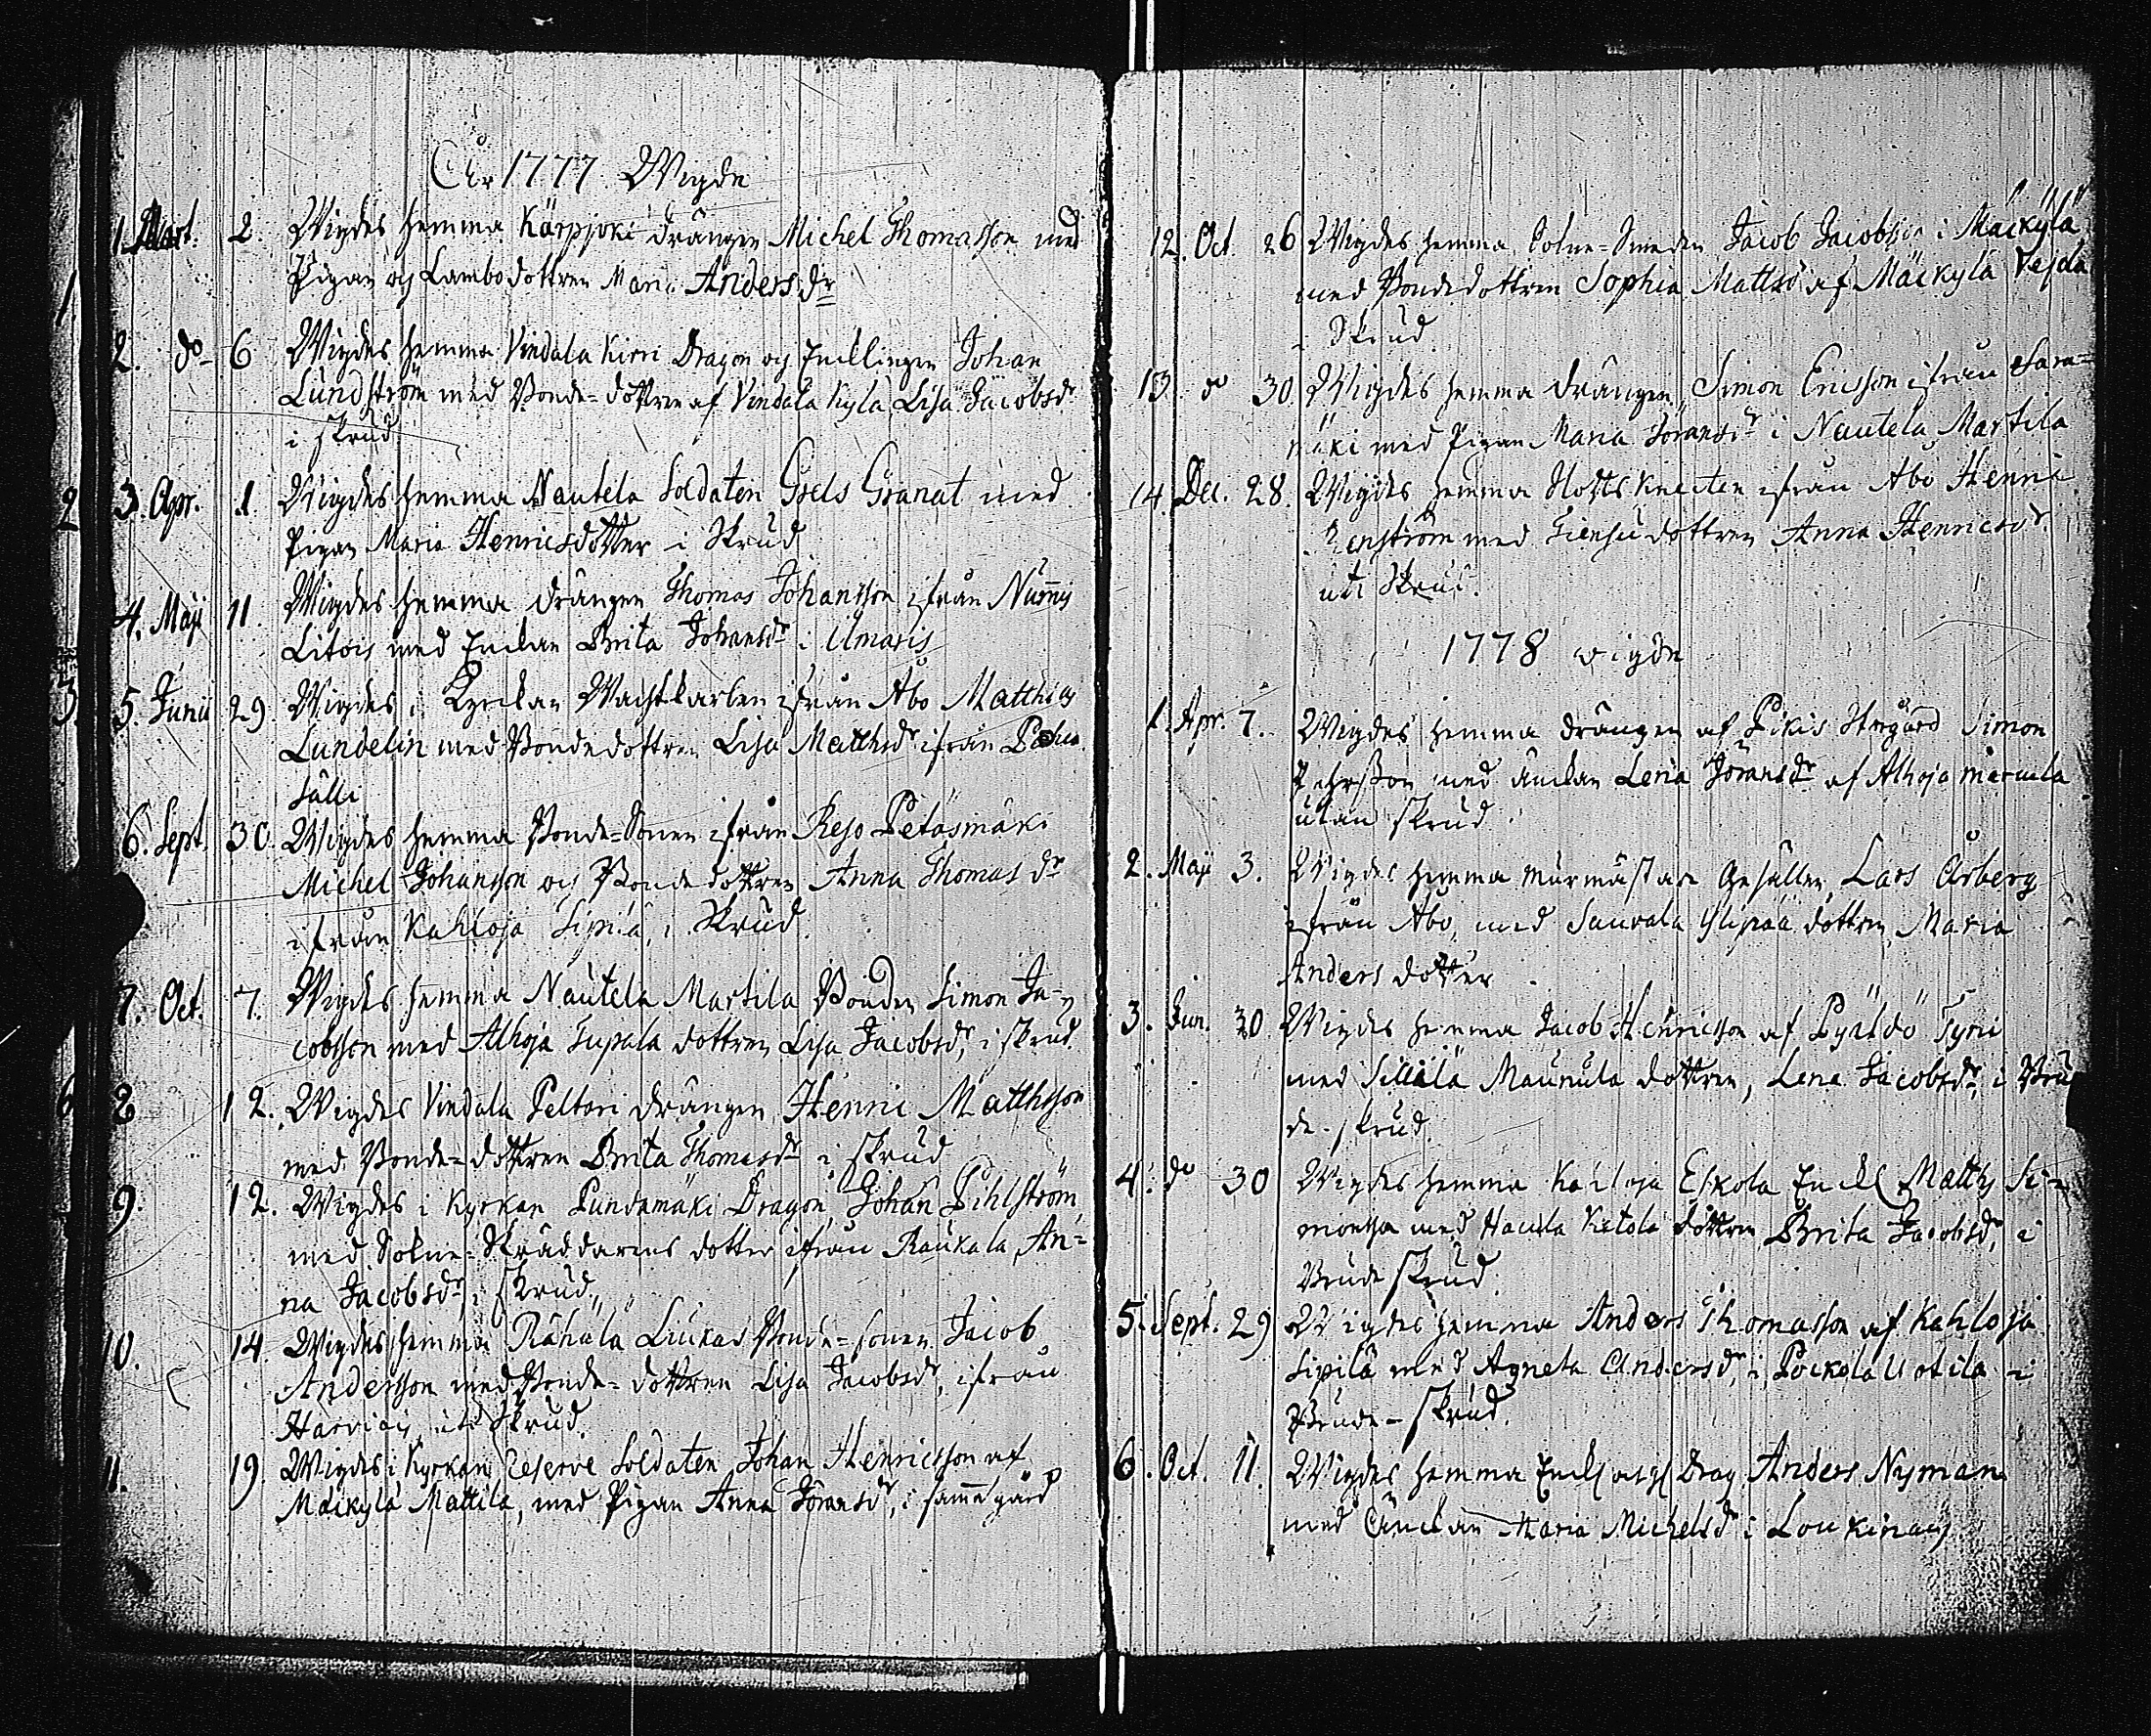 År 1777 Wigde
1. Mart. 2. Wigdes hemma Kärpjoki drängen Michel Thomasson med
Pigan og Lambodottren Maria Andersdr
2. do 6 Wigdes hemma Vindala Kirri Dragon og Enklingen Johan
Lundström med Bonde-dottren af Vindala Kylä Lisa Jacobsdr
i skrud
3. Apr. 1. Wigdes hemma Nautela Soldaten Grels Granat med
Pigan Maria Henricsdotter i Skrud
4. Maji 11 Wigdes hemma drängen Thomas Johansson ifrån Nummis
Litois med Enckan Brita Johansdr i Ilmaris
5. Junii 29. Wigdes i Kyrckan Wachtkarlen ifrån Åbo Matthias
Lundelin med Bondedottren Lisa Matthsdr ifrån
Sälli
6. Sept. 30. Wigdes hemma Bonde-Sonen ifrån Rejo Petäsmäki
Michel Johansson og Bondedottren Anna Thomas dr
ifrån Kahloja Sipilä, i Skrud.
7. Oct. 7. Wigdes hemma Nautela Martila Bonden Simon Ja-
cobsson med Alhoja Tupala dottren Lisa Jacobsdr, i skrud.
8 12. Wigdes Vindala Peltari drängen Henric Matthsson
med Bonde-dottren Brita Thomasdr i skrud
9. 12. Wigdes i Kyrkan Pundamäki Dragon Johan Pihlström,
med Sokne-Skräddarens dotter ifrån Raukala, An-
na Jacobsdr, i skrud.
10. 14. Wigdes hemma Rähälä Liukas Bonde-sonen Jacob
Andersson med Bonde-dottren Lisa Jacobsdr, ifrån
Harvois uti Skrud.
11. 19. Wigdes i Kyrkan Reserve Soldaten Johan Henricsson af
Mäikylä Mattila, med Pigan Anna Göransdr, i samma gård
12. Oct. 26 Wigdes hemma Sokne-Smeden Jacob Jacobsson i Mäckylä
med Bondedottren Sophia Mattsdr af Mäckylä Vejda
i Skrud
13. do 30 Wigdes hemma drängen Simon Ericsson ifrån Sara-
mäki med Pigan Maria Göransdr i Nautela Martila
14. Dec. 28. Wigdes hemma Slotts knecten ifrån Åbo Henric
med dottren Anna Henricsdr
uti Skrud.
1778 wigde
1. Apr. 7. Wigdes hemma drängen af Pikis Hrgård Simon
Pehrsson med änckan Lena Göransdr af Alhoja
utan skrud.
2. Maji 3. Wigdes hemma murmästare Gesällen Lars Årberg
ifrån Åbo, med Saurala Ylipää dottren Maria
Anders dotter
3. Jun. 20. Wigdes hemma Jacob Henricsson af Pyäldö Tyrii
med Sillilä Maunula dottren, Lena Jacobsdr, i Bru-
de-skrud.
4. do 30 Wigdes hemma Kailoja Eskola Enckl Matths Si-
monsson med Haucla Kietola dottren Brita Jacobsdr, i
Brude skrud.
5. Sept. 29 Wigdes hemma Anders Thomasson af Kahloja
Sipilä med Agneta Andersdr, i Pockola Uotila i
Brude-skrud.
6. Oct. 11. Wigdes hemma Drag Anders Nyman
med Änckan Maria Michelsdr i Loukinais